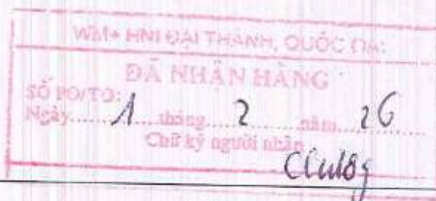 WM+ HNI ĐẠI THÀNH, QUỐC OAI
ĐÃ NHẬN HÀNG
SỐ PO/TO:
Ngày 1 tháng 2 năm 26
Chữ ký người nhận